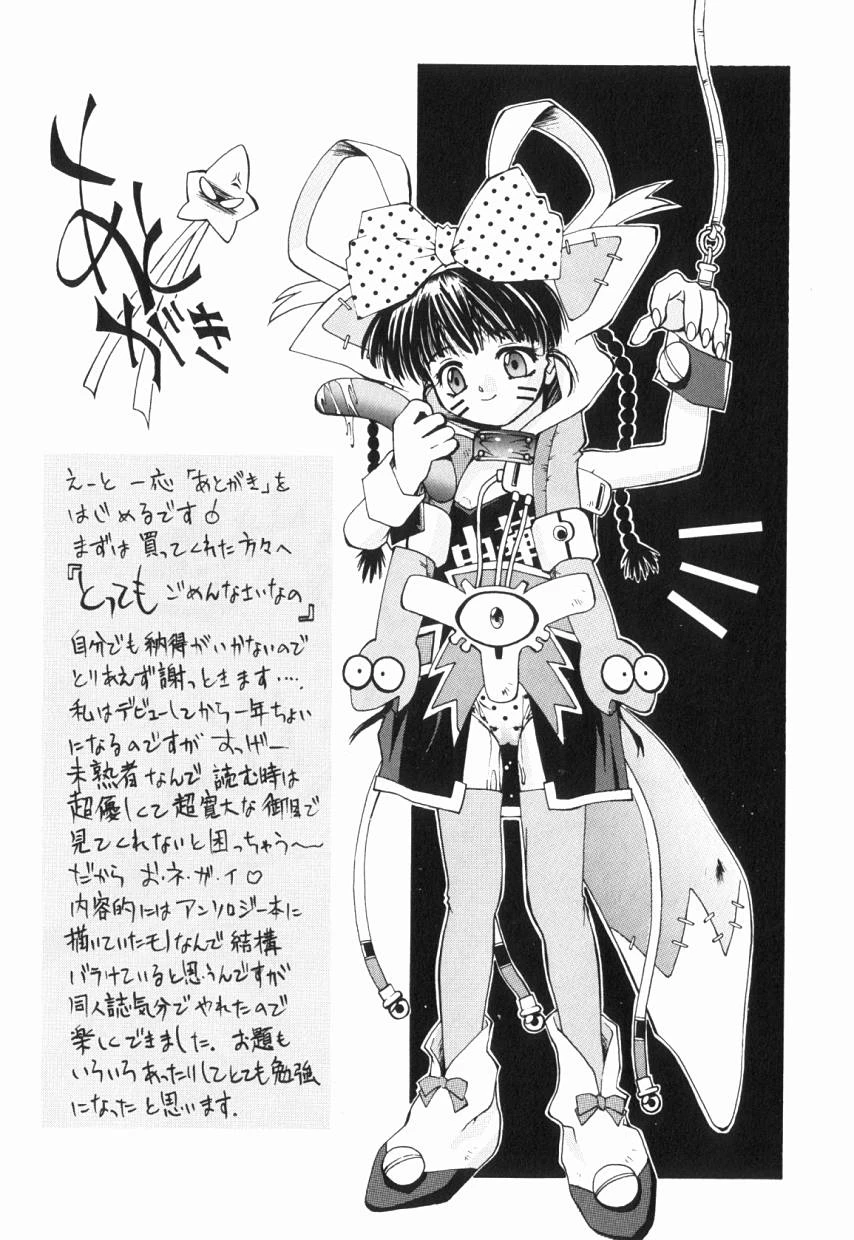 えーと 一応「あとがき」を
はじめるです
まずは 買ってくれた方々へ
『とっても ごめんなさいなの』
自分でも納得がいかないので
とりあえず謝っときます….
私はデビューしてから一年ちょい
になるのですが すっげー
未熟者なんで 読む時は
超優しくて超寛大な御目で
見てくれないと困っちゃう〜
だから お・ネ・ガ・イ♡
内容的にはアンソロジー本に
描いていたモノなんで結構
バラけていると思うんですが
同人誌気分でやれたので
楽しくできました. お題も
いろいろあったりしてとても勉強
になったと思います.
中華